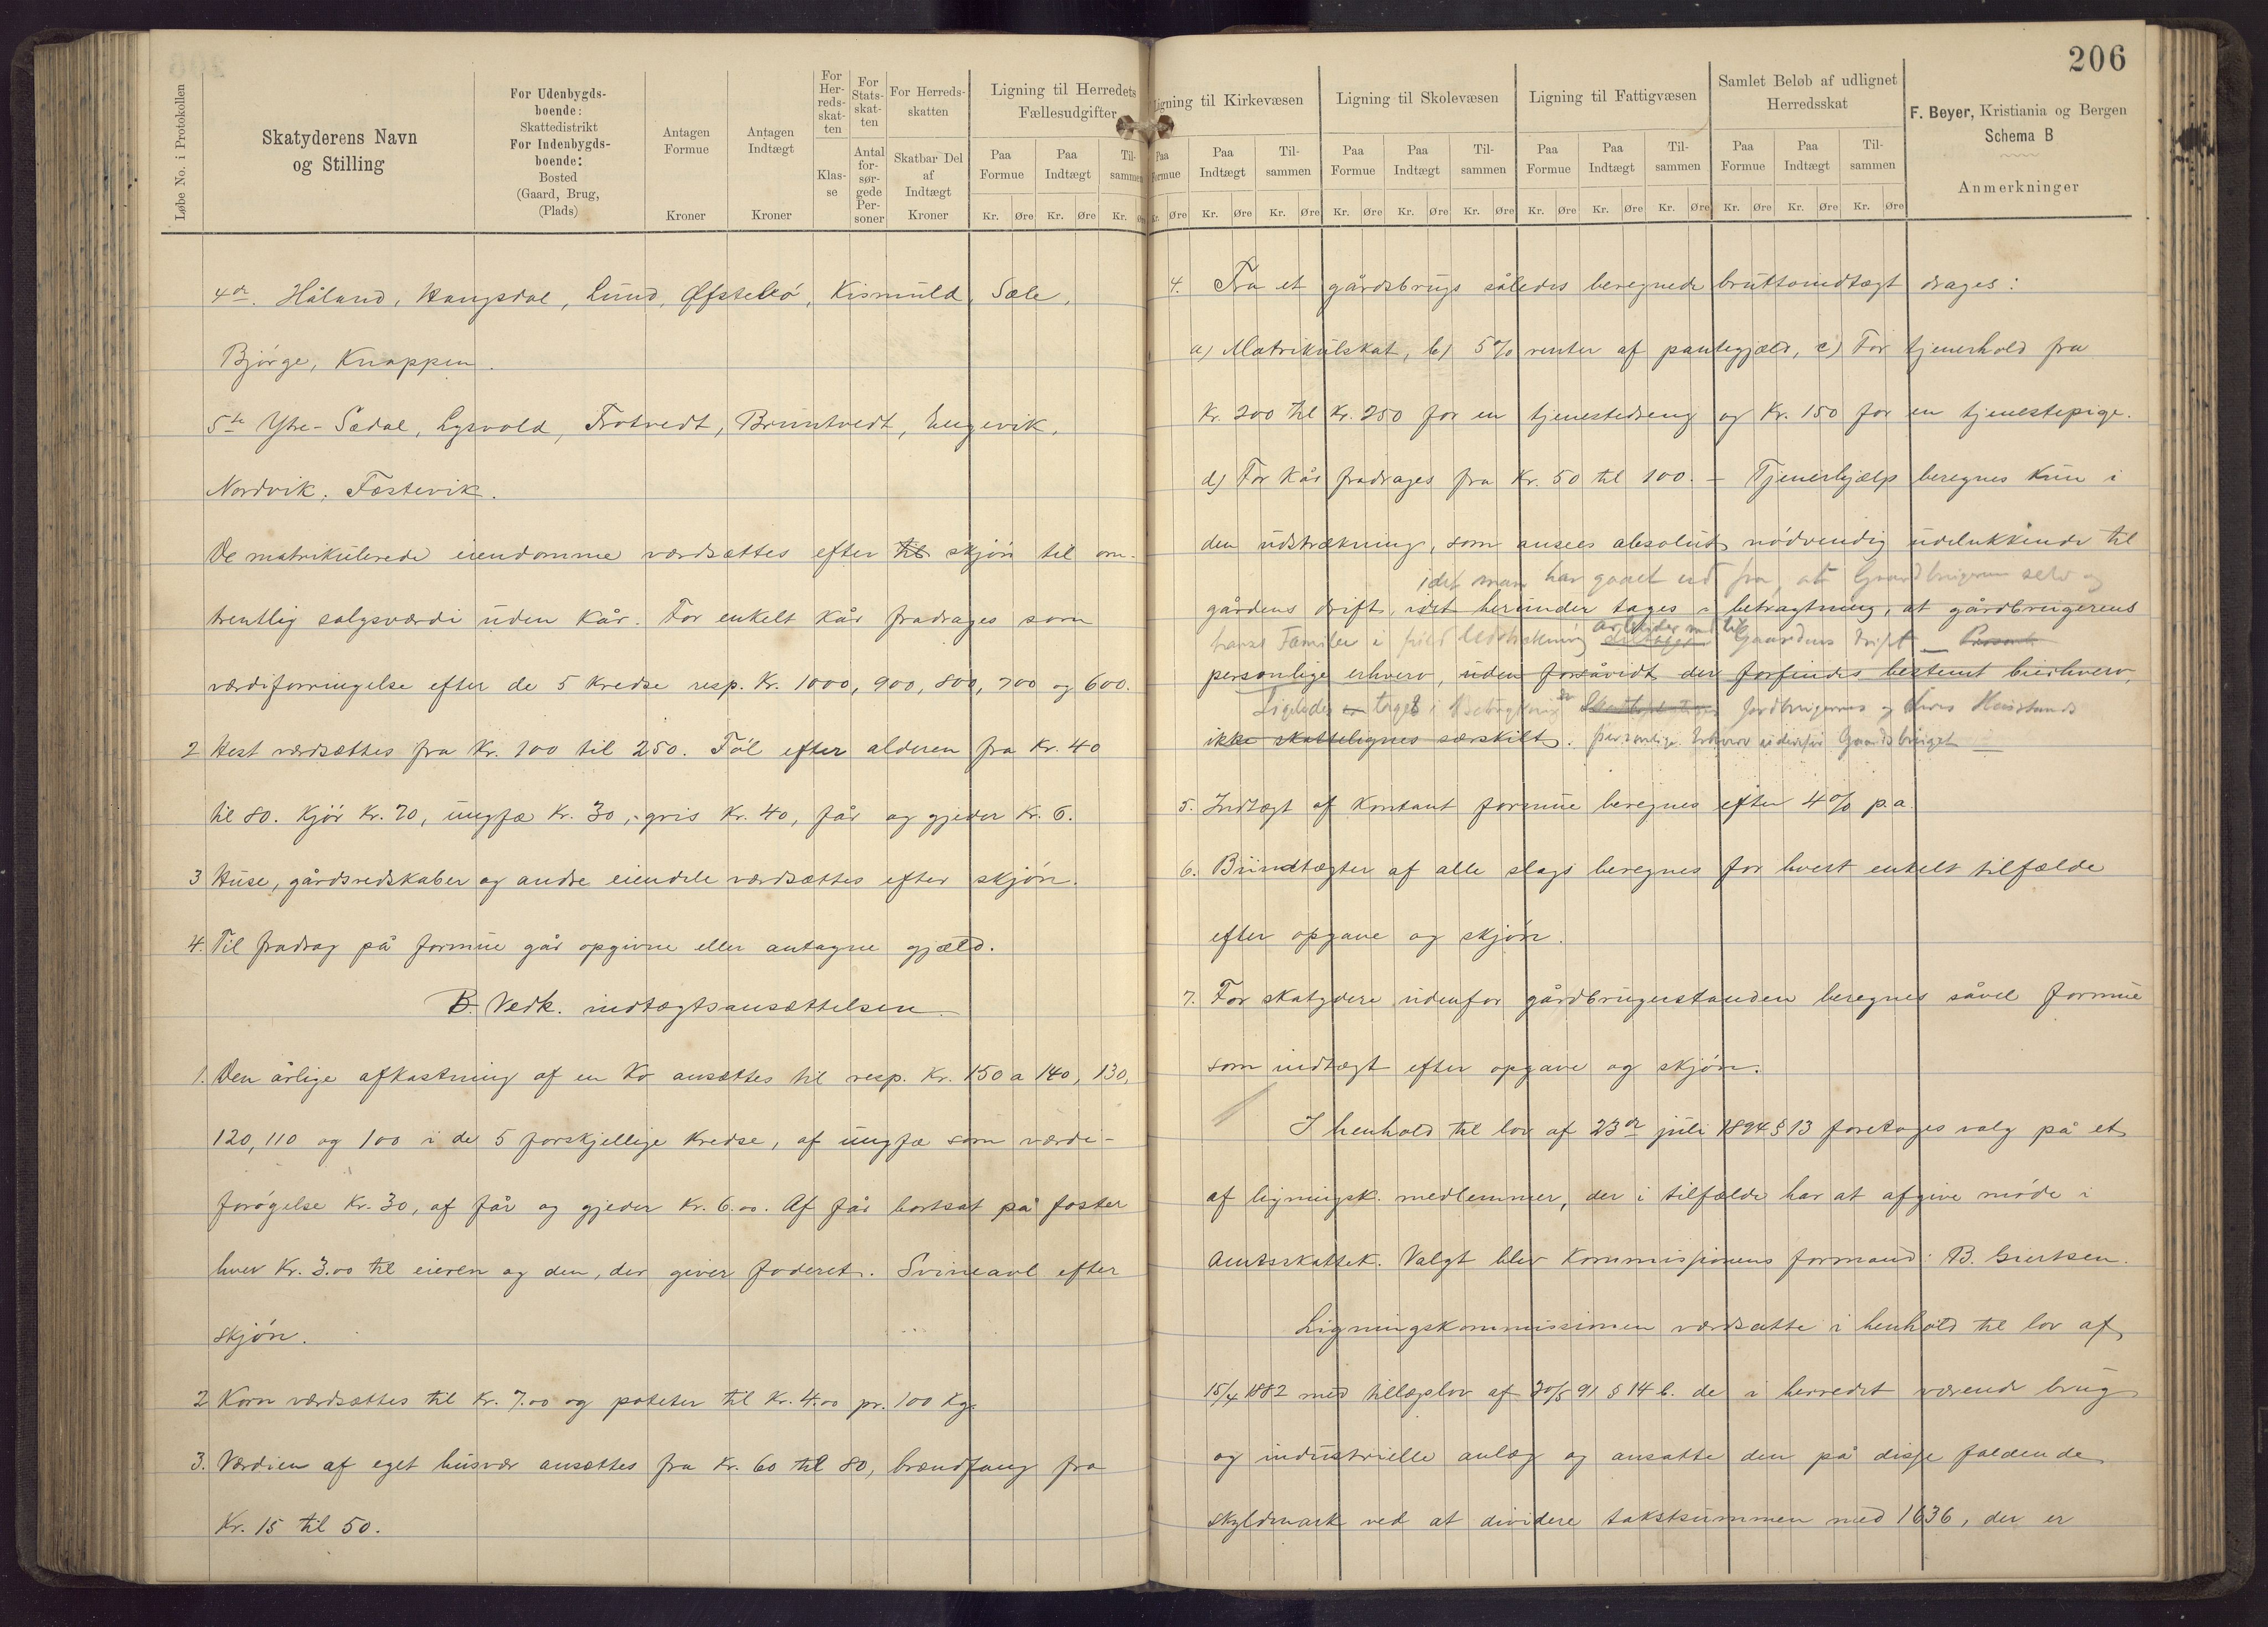 206
Løbe No. i Protokollen
Skatyderens Navn
og Stilling
For Udenbygds-
boende:
Skattedistrikt
For Indenbygds-
boende:
Bosted
(Gaard, Brug,
(Plads)
Antagen
Formue
Kroner
Antagen
Indtægt
Kroner
For
Her-
reds-
skat-
ten
Klas-
se
For
Stats-
skat-
ten
Antal
for-
sør-
gede
Per-
soner
For Herreds-
skatten
Skatbar Del
af
Indtægt
Kroner
Ligning til Herredets
Fællesudgifter
Paa Formue Paa Indtægt Til-sammen
Kr. Øre Kr. Øre Kr. Øre
4de. Håland, Haugsdal, Lund, Øfstebø, Kismuld, Sæle,
Bjørge, Knappen.
5te Ytre-Sædal, Lysvold, Trotvedt, Bruntvedt, Engevik,
Nordvik, Fæstevik.
De matrikulerede eiendomme værdsættes efter til skjøn til om-
trentlig salgsværdi uden kår. For enkelt kår fradrages som
værdiforringelse efter de 5 kredse resp. Kr. 1000, 900, 800, 700 og 600.
2 Hest værdsættes fra Kr. 100 til 250. Føl efter alderen fra Kr. 40
til 80. Kjør Kr. 70, ungfæ Kr. 30, gris Kr. 40, får og gjeder Kr. 6.
3 Huse, gårdsredskaber og andre eiendele værdsættes efter skjøn.
4. Til fradrag på formue går opgivne eller antagne gjæld.
B. Vedk. indtægtsansættelsen.
1. Den årlige afkastning af en ko ansættes til resp. Kr. 150 a 140, 130,
120, 110 og 100 i de 5 forskjellige kredse, af ungfæ som værdi-
forøgelse Kr. 30, af får og gjeder Kr. 6.00. Af får bortsat på foster
hver Kr. 3.00 til eieren og den, der giver foderet. Svineavl efter
skjøn.
2 Korn værdsættes til Kr. 7.00 og poteter til Kr. 4.00 pr. 100 Kg.
3. Værdien af eget husvær ansættes fra Kr. 60 til 80, brændfang fra
Kr. 15 til 50.
Ligning til Kirkevæsen
Paa Formue Paa Indtægt Til-sammen
Kr. Øre Kr. Øre Kr. Øre
Ligning til Skolevæsen
Paa Formue Paa Indtægt Til-sammen
Kr. Øre Kr. Øre Kr. Øre
Ligning til Fattigvæsen
Paa Formue Paa Indtægt Til-sammen
Kr. Øre Kr. Øre Kr. Øre
Samlet Beløb af udlignet
Herredsskat
Paa Formue Paa Indtægt Til-sammen
Kr. Øre Kr. Øre Kr. Øre
F. Beyer, Kristiania og Bergen
Schema B
Anmerkninger
4. Fra et gårdsbrugs således beregnede bruttoindtægt drages:
a) Matrikulskat, b) 5% renter af pantegjæld, c) For tjenerhold fra
Kr. 200 til Kr. 250 for en tjenestedreng og Kr. 150 for en tjenestepige.
d) For kår fradrages fra Kr. 50 til 100. - Tjenerhjælp beregnes kun i
den udstrækning, som ansees absolut nødvendig udelukkende til
idet man har gaaet ud fra, at Gaardbrugeren selv og
gårdens drift, idet herunder tages i betragtning, at gårdbrugerens
hans Familie i fuld Udstrækning arbeider med til Gaardens Drift
personlige erhverv, uden forsåvidt der forfindes bestemt bierhverv,
Ligeledes er taget i Betragtning Jordbrugerens og hans Husstands
ikke skattelignes særskilt. personlige Erhverv udenfor Gaardsbruget
5. Indtægt af kontant formue beregnes efter 4% p.a.
6. Biindtægter af alle slags beregnes for hvert enkelt tilfælde
efter opgave og skjøn.
7. For skatydere udenfor gårdbrugerstanden beregnes såvel formue
som indtægt efter opgave og skjøn.
I henhold til lov af 23de juli 1894 § 13 foretages valg på et
af ligningsk. medlemmer, der i tilfælde har at afgive møde i
Amtsskattek. Valgt blev Kommissionens formand B. Giertsen.
Ligningskommissionen værdsatte i henhold til lov af
15/4 1882 med tillægslov af 30/5 91 § 14 b. de i herredet værende brug
og industrielle anlæg og ansatte den på disse faldende
skyldmark ved at dividere takstsummen med 1636, der er